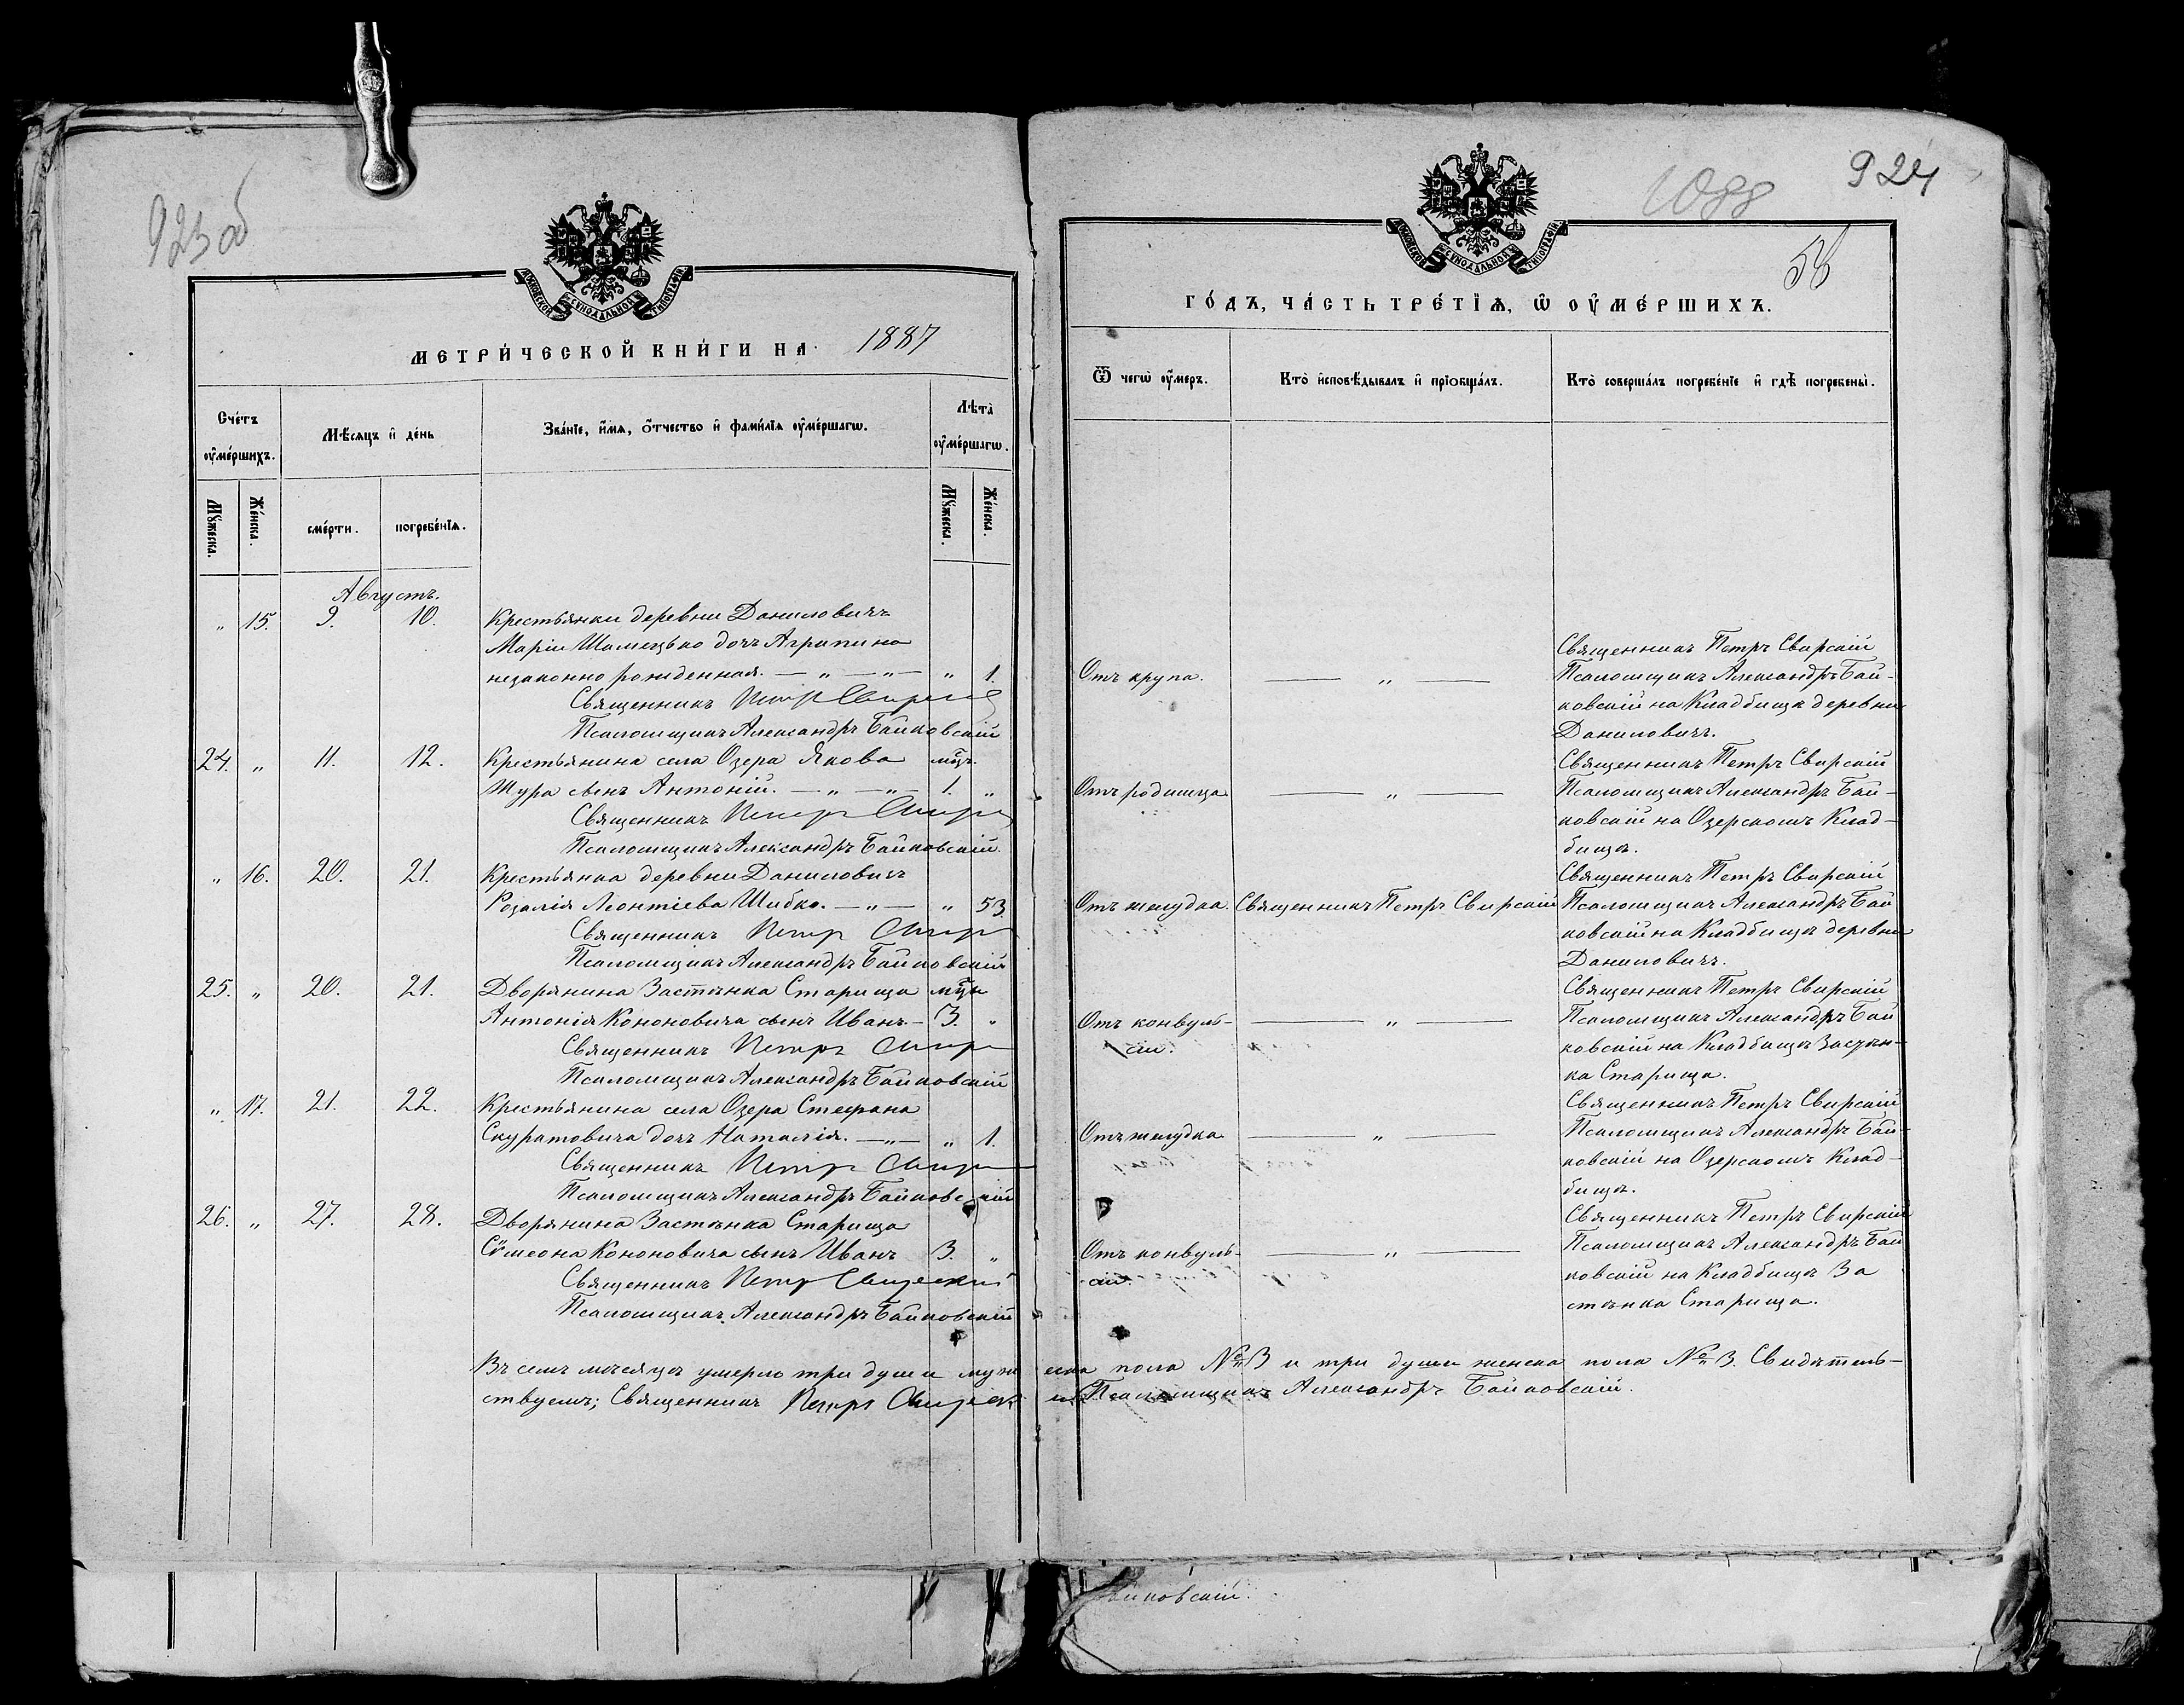 923 об
МОСКОВСКОЙ СѴНОДАЛЬНОЙ ТИПОГРАФІИ
МЕТРИ́ЧЕСКОЙ КНИ́ГИ НА 1887
Сче́тъ ᲂу҆ме́ршихъ.
Мѣ́сяцъ и҆ де́нь
Зва́нїе, и҆́мя, ѻ҆́тчество и҆ фами́лїя ᲂу҆ме́ршагѡ.
Лѣ́та ᲂу҆ме́ршагѡ.
Мꙋ́жеска.
Же́нска.
сме́рти.
погребе́нїѧ.
Мꙋ́жеска.
Же́нска.
Августъ.
" 15. 9. 10. Крестьянки деревни Даниловичъ
Маріи Шамецько дочь Агрипина
незаконно рожденная. — " — " — " 1.
Священникъ Петръ Свирскій
Псаломщикъ Александръ Байковскій
24. " 11. 12. Крестьянина села Озера Якова мѣц.
Жура сынъ Антоній. — " — " — 1. "
Священникъ Петръ Свирскій
Псаломщикъ Александръ Байковскій.
" 16. 20. 21. Крестьянка деревни Даниловичъ
Розалія Леонтіева Шибко. — " — " 53.
Священникъ Петръ Свирскій
Псаломщикъ Александръ Байковскій
25. " 20. 21. Дворянина Застѣнка Старища мѣц
Антонія Кононовича сынъ Иванъ. — 3. "
Священникъ Петръ Свирскій
Псаломщикъ Александръ Байковскій
" 17. 21. 22. Крестьянина села Озера Стефана
Скуратовича дочь Наталія. — " — " 1.
Священникъ Петръ Свирскій
Псаломщикъ Александръ Байковскій
26. " 27. 28. Дворянина Застѣнка Старища
Сѵмеона Кононовича сынъ Иванъ 3. "
Священникъ Петръ Свирскій
Псаломщикъ Александръ Байковскій
Въ семъ мѣсяцѣ умерло три души мужеска пола № 3 и три души женска пола № 3. Свидѣтель-
ствуемъ; Священникъ Петръ Свирскій Псаломщикъ Александръ Байковскій.
1088
924
58
МОСКОВСКОЙ СѴНОДАЛЬНОЙ ТИПОГРАФІИ
ГО́ДЪ, ЧА́СТЬ ТРЕ́ТЇѦ, Ѡ҆ ОУ҆МЕ́РШИХЪ.
Ѿ чегѡ̀ ᲂу҆́меръ.
Кто̀ и҆сповѣ́дывалъ и҆ прїѻбща́лъ.
Кто̀ соверша́лъ погребе́нїе и҆ гдѣ̀ погребены̀.
Священникъ Петръ Свирскій
Отъ крупа. — " — Псаломщикъ Александръ Бай-
ковскій на Кладбищѣ деревни
Даниловичъ.
Священникъ Петръ Свирскій
Отъ родимца — " — Псаломщикъ Александръ Бай-
ковскій на Озерскомъ Клад-
бищѣ.
Священникъ Петръ Свирскій
Отъ желудка. Священникъ Петръ Свирскій Псаломщикъ Александръ Бай
ковскій на Кладбищѣ деревни
Даниловичъ.
Священникъ Петръ Свирскій
Отъ конвуль- — " — Псаломщикъ Александръ Бай
сіи. ковскій на Кладбищѣ Застѣн-
ка Старища.
Священникъ Петръ Свирскій
Отъ желудка — " — Псаломщикъ Александръ Бай-
ковскій на Озерскомъ Клад-
бищѣ.
Священникъ Петръ Свирскій
Отъ конвуль- — " — Псаломщикъ Александръ Бай
сіи. ковскій на Кладбищѣ За
стѣнка Старища.
йковскій.